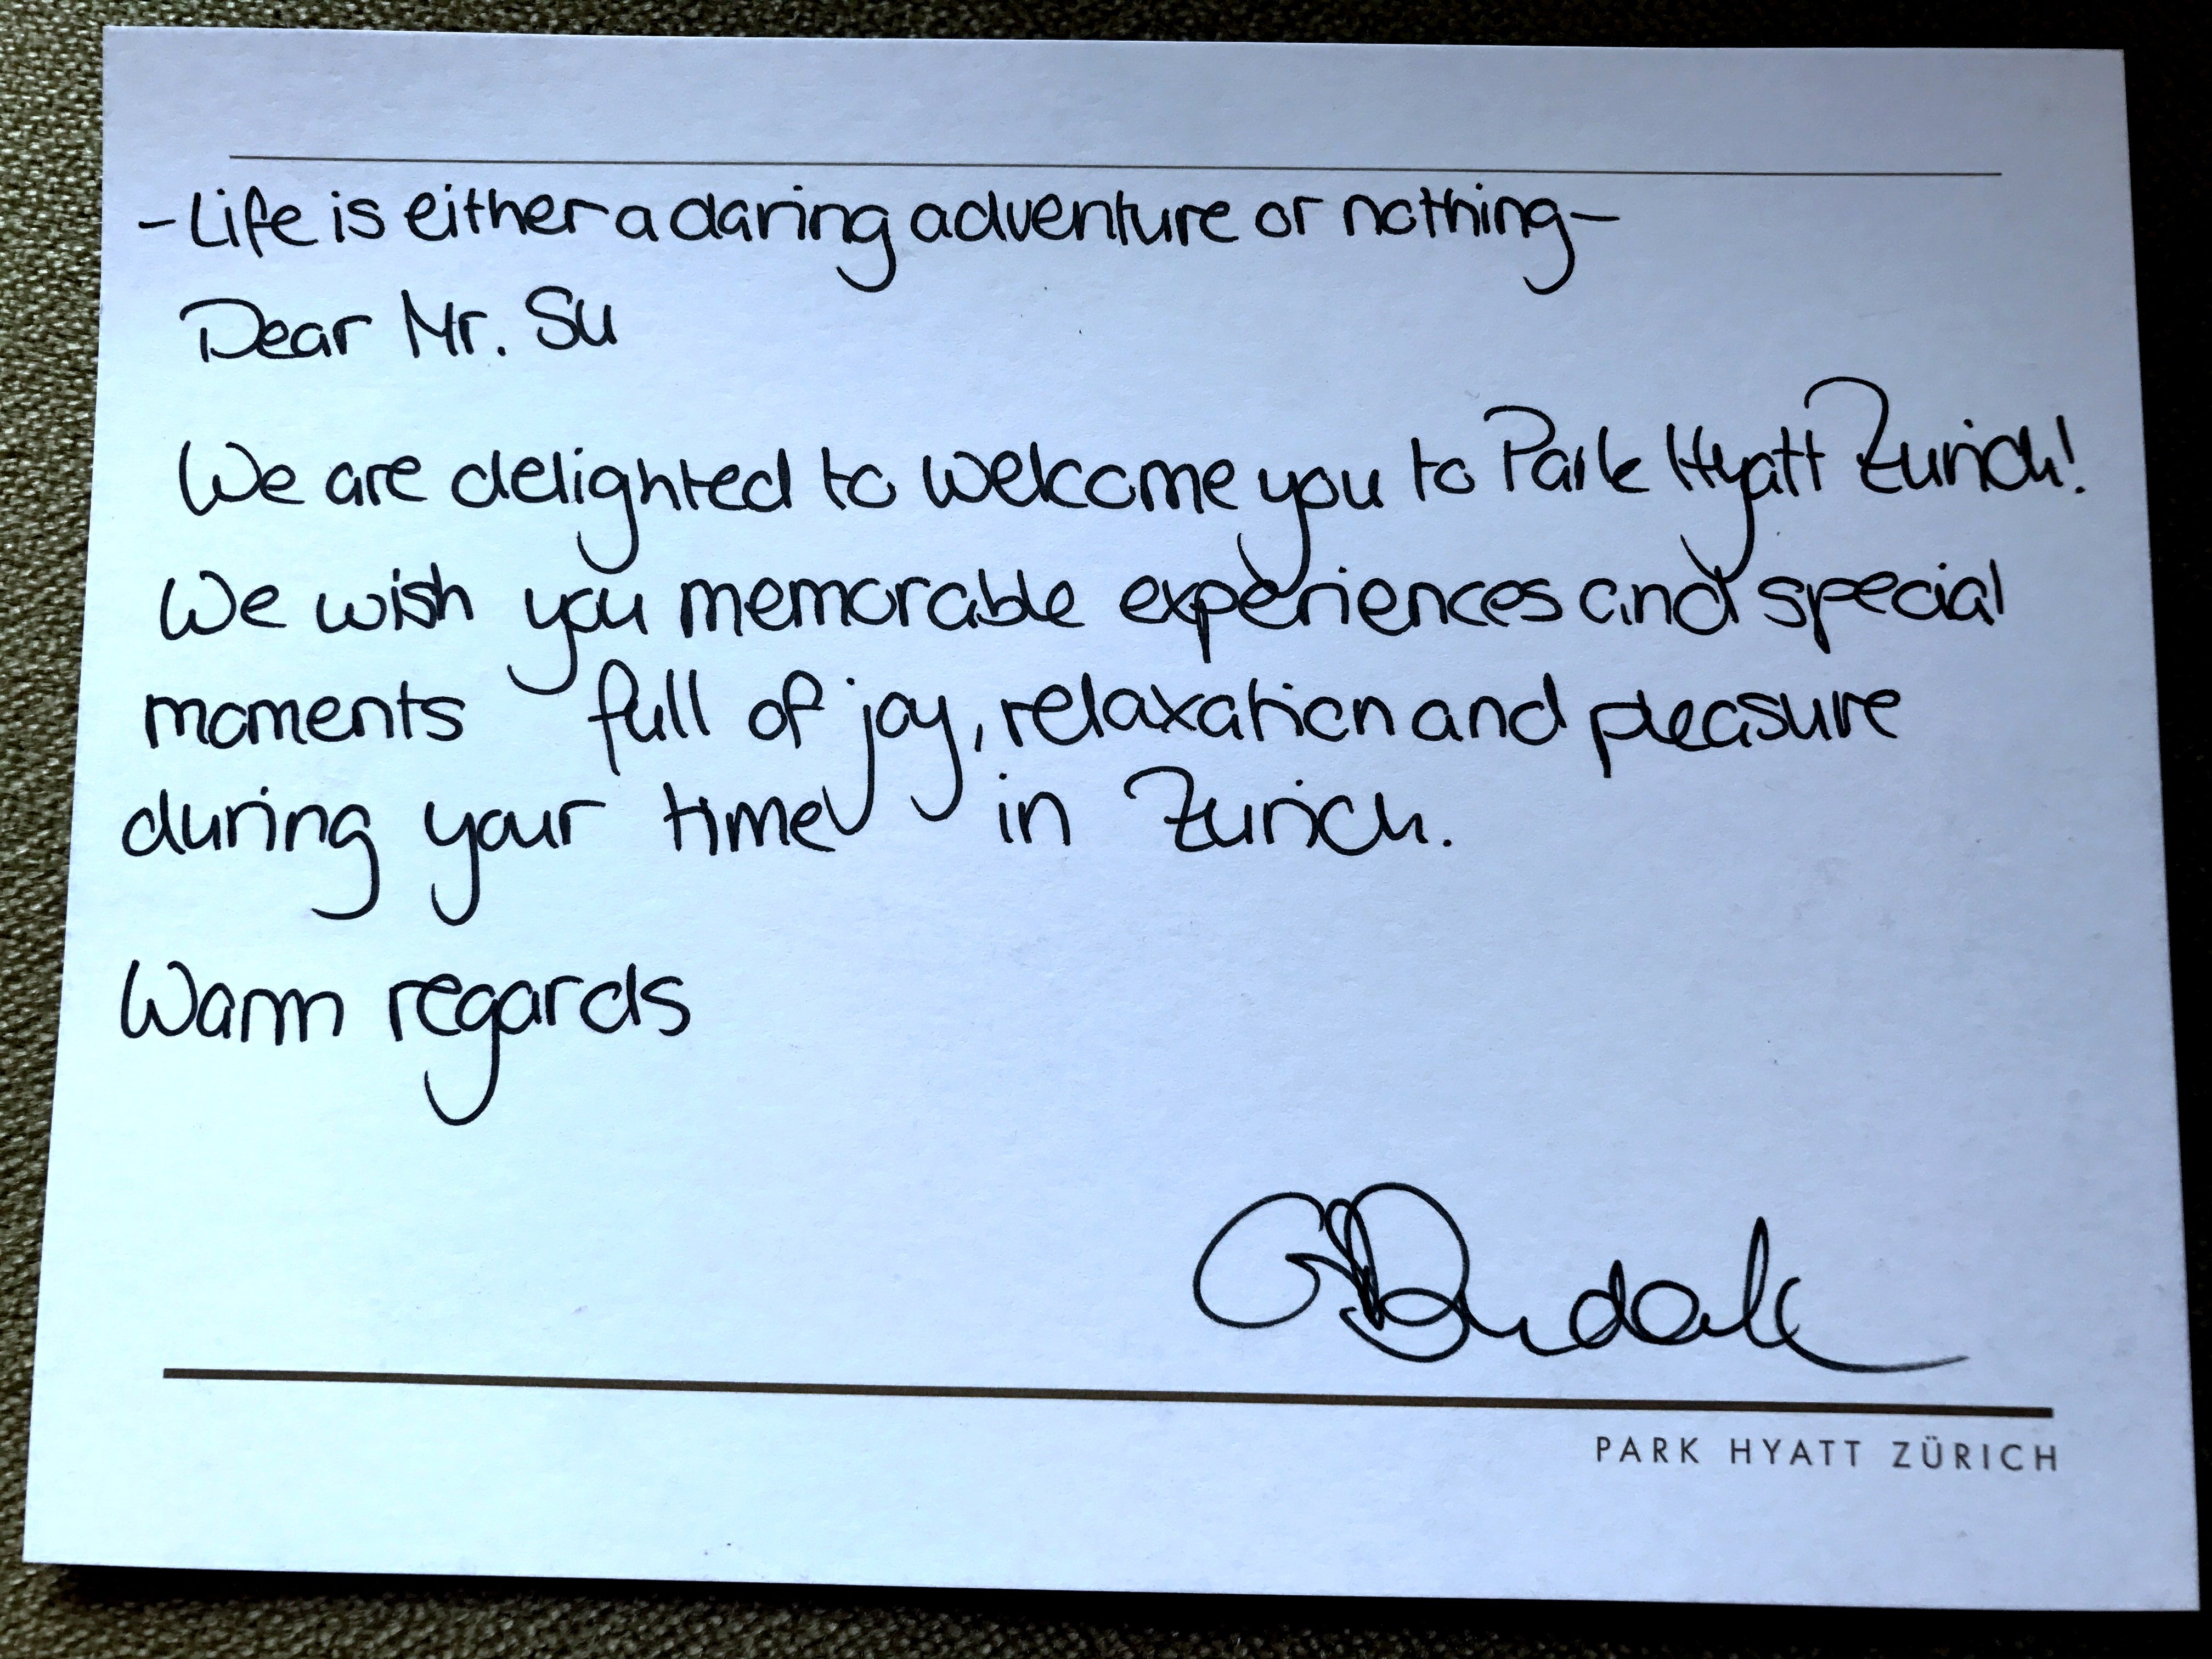 -Life is either a daring adventure or nothing-
Dear Mr. Su
We are delighted to welcome you to Park Hyatt Zurich!
We wish you memorable experiences and special
moments full of joy, relaxation and pleasure
during your time in Zurich.
Warm regards
PARK HYATT ZÜRICH